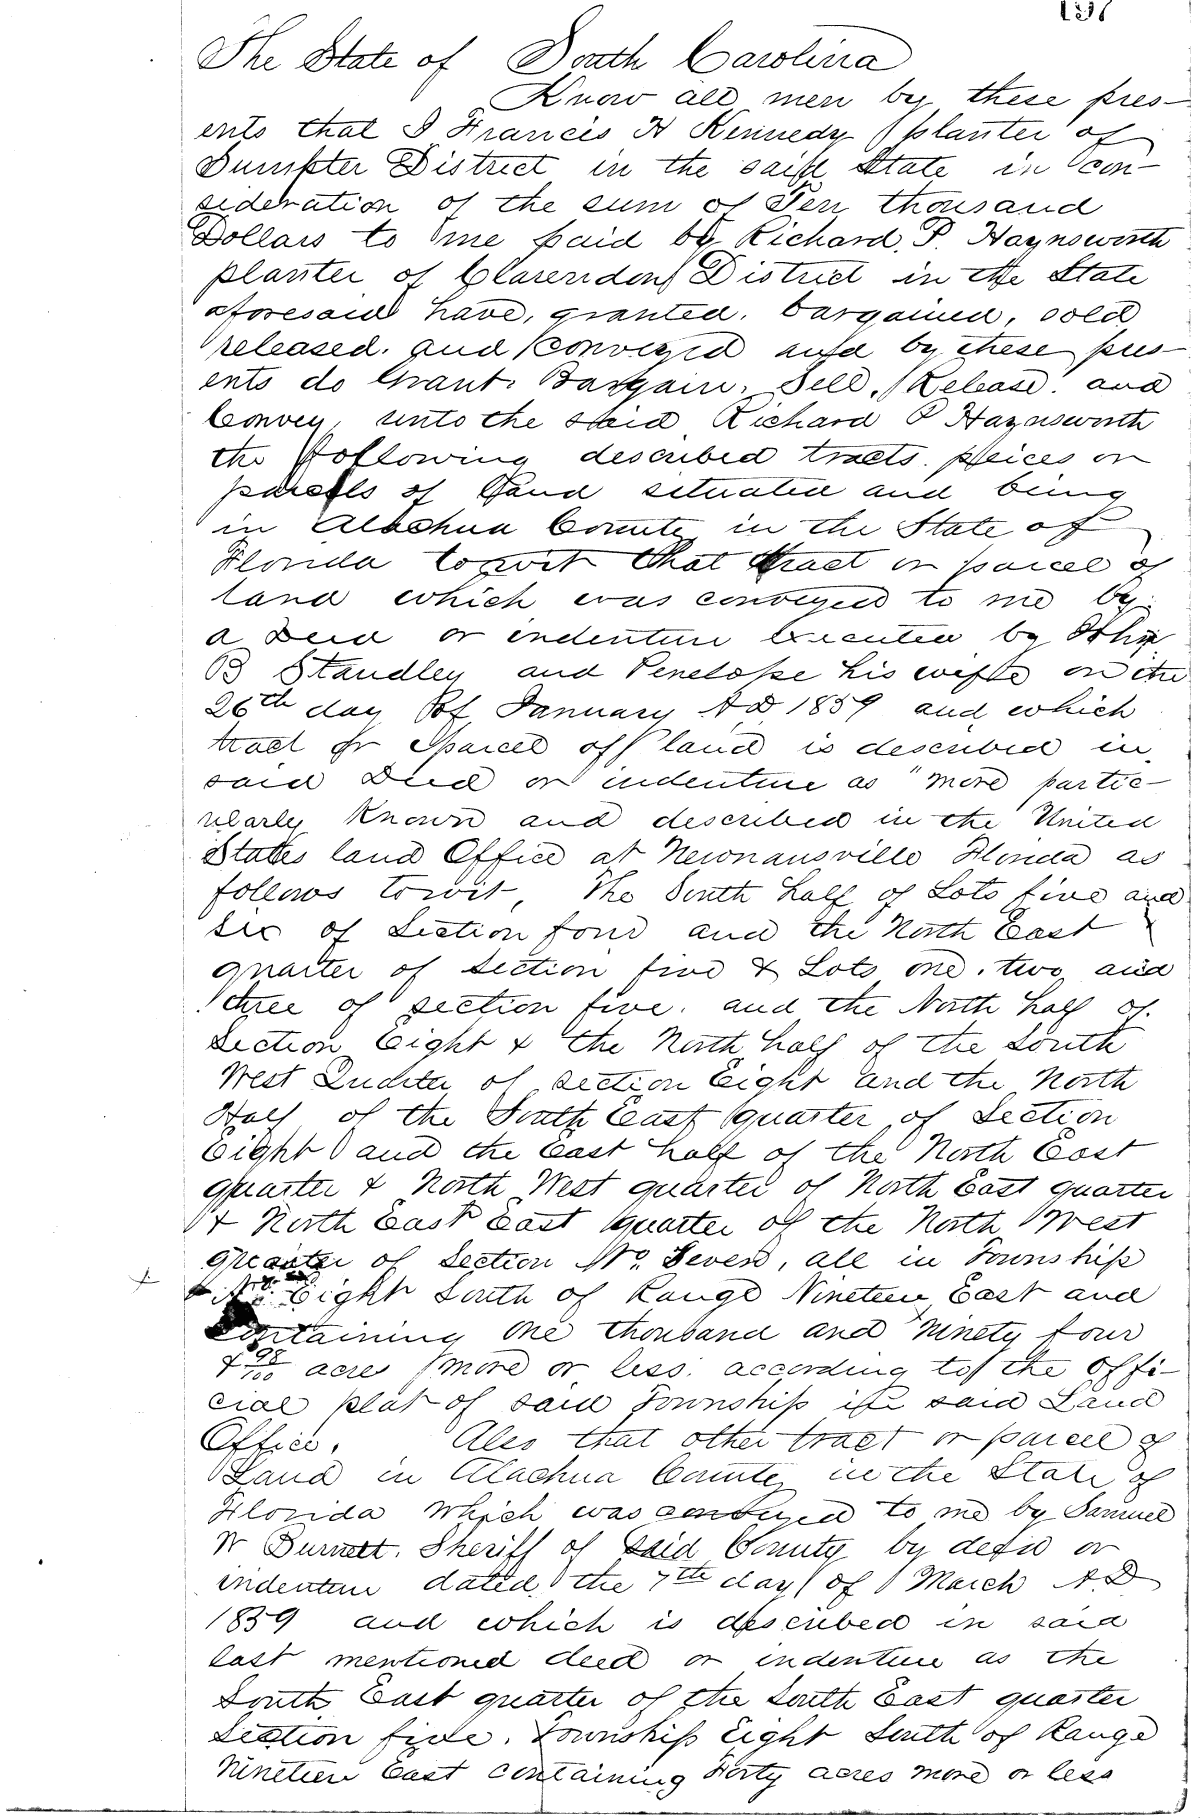 The State of South Carolina
Know all men by these pres-
ents that I Francis H Kennedy planter of
Sumpter District in the said State in con-
sideration of the sum of Ten thousand
Dollars to me paid by Richard P. Haynsworth
planter of Clarendon District in the State
aforesaid have, granted, bargained, sold
released, and conveyed and by these pres-
ents do Grant. Bargain, Sell, Release, and
Convey, unto the said Richard P Haynsworth
the following described tracts, peices or
parcells of Land situated and being
in Alachua County in the State of
Florida towit that tract or parcel of
land which was conveyed to me by
a Deed or indenture executed by John
B Standley and Penelope his wife on the
26th day of January AD 1859 and which
tract or parcel of land is described in
said Deed or indenture as "more partic-
ularly known and described in the United
States land Office at Newnansville Florida as
follows towit, The South half of Lots five and
six of Section four and the North East
quarter of Section five & Lots one, two and
three of section five, and the North half of
Section Eight & the North half of the South
West Quarter of section Eight and the North
Half of the South East quarter of Section
Eight and the East half of the North East
quarter & North West quarter of North East quarter
& North East East quarter of the North West
quarter of Section No. Seven, all in Township
No. Eight South of Range Nineteen East and
containing one thousand and ninety four
& 98/100 acres more or less, according to the offi-
cial plat of said Township in said Land
Office. Also that other tract or parcel of
Land in Alachua County in the State of
Florida which was conveyed to me by Samuel
W Burnett. Sheriff of said County by deed or
indenture dated the 7th day of March A.D
1859 and which is described in said
last mentioned deed or indenture as the
South East quarter of the South East quarter
Section five, Township Eight South of Range
Nineteen East containing Forty acres more or less